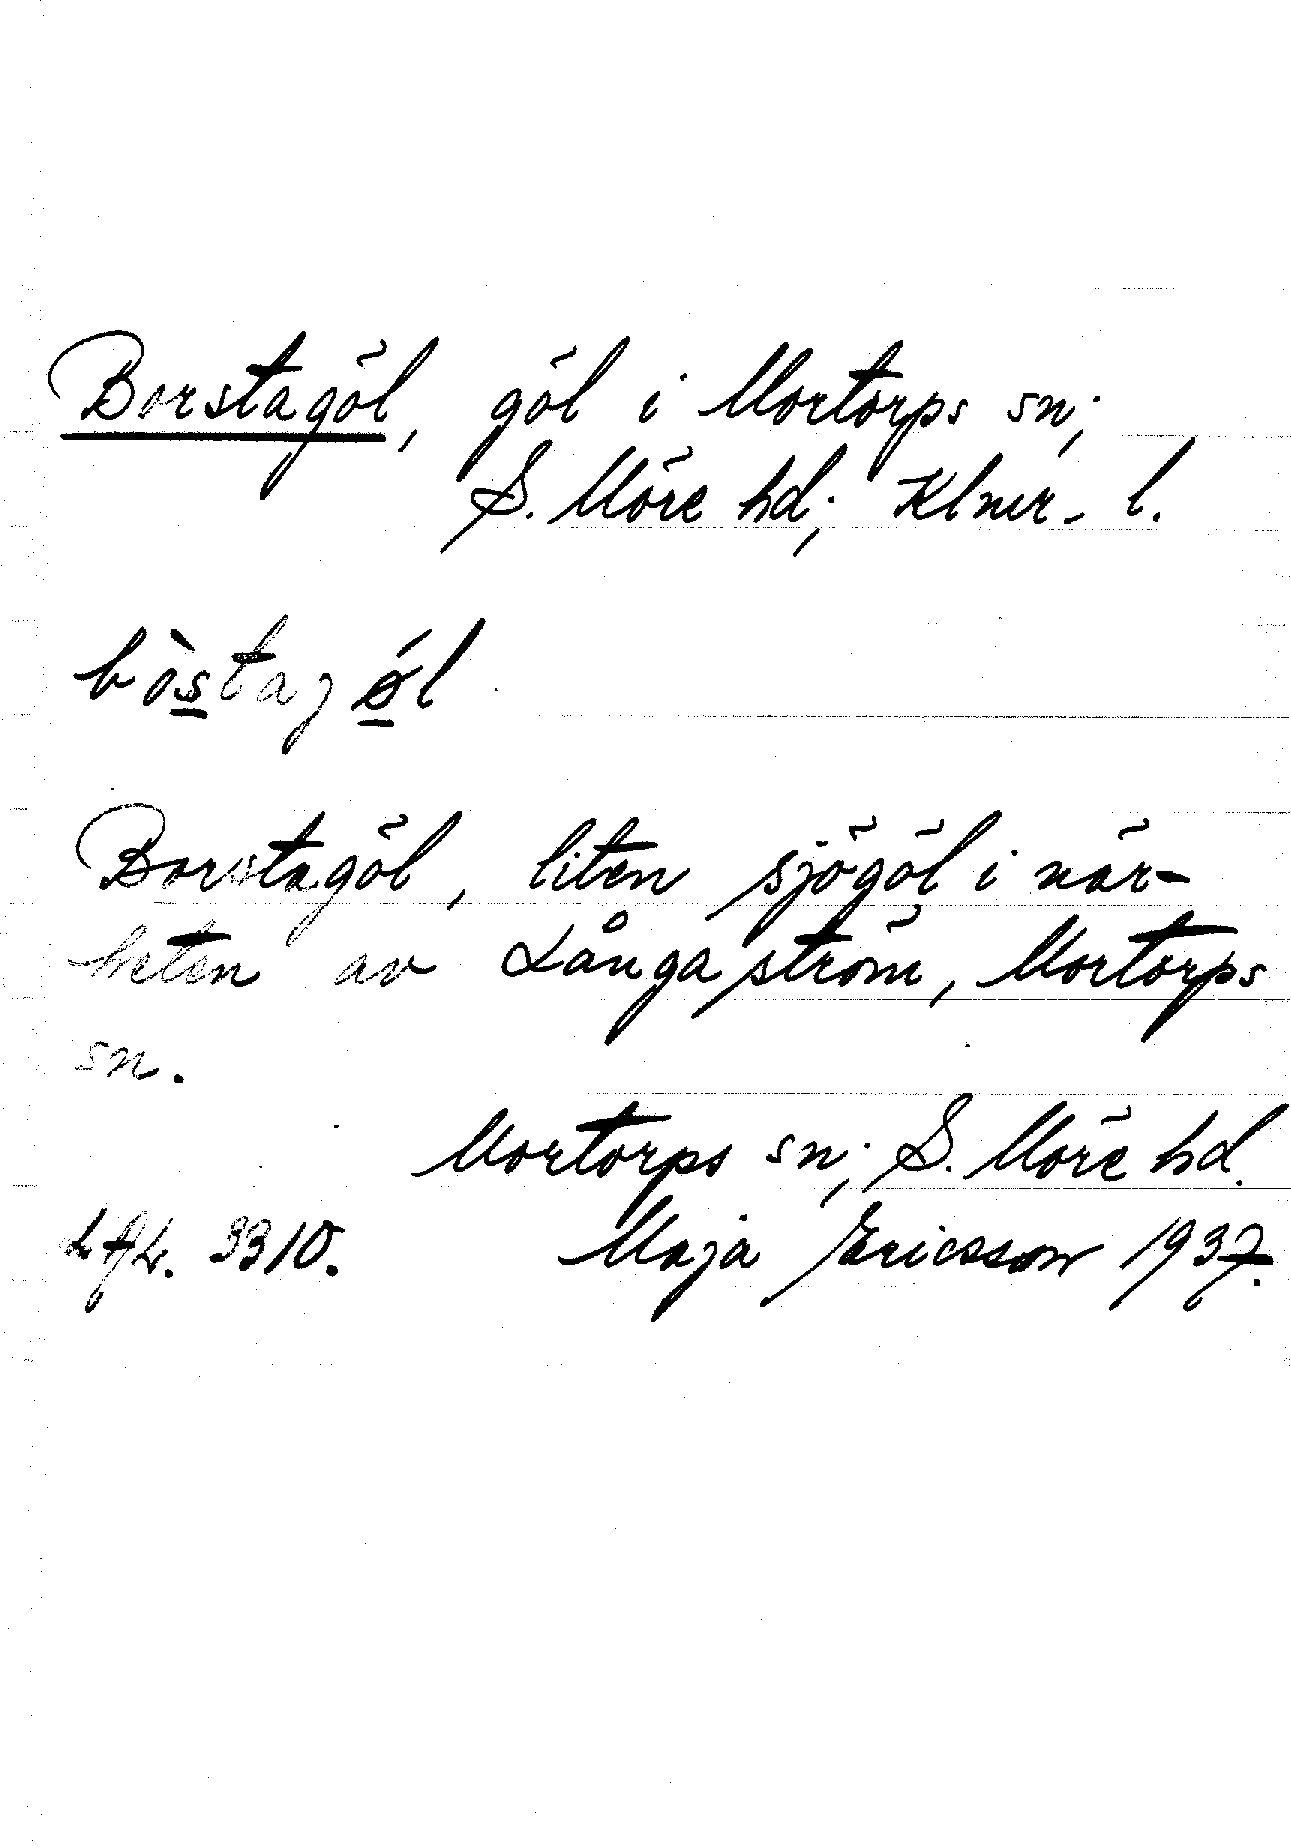 Borstagöl, göl i Mortorps sn;
S. Möre hd; Klmr. l.
bòstagǿl
Borstagöl, liten sjögöl i när-
heten av Långaström, Mortorps
sn.
Mortorps sn; S. Möre hd.
LAL. 3310. Maja Ericsson 1937.